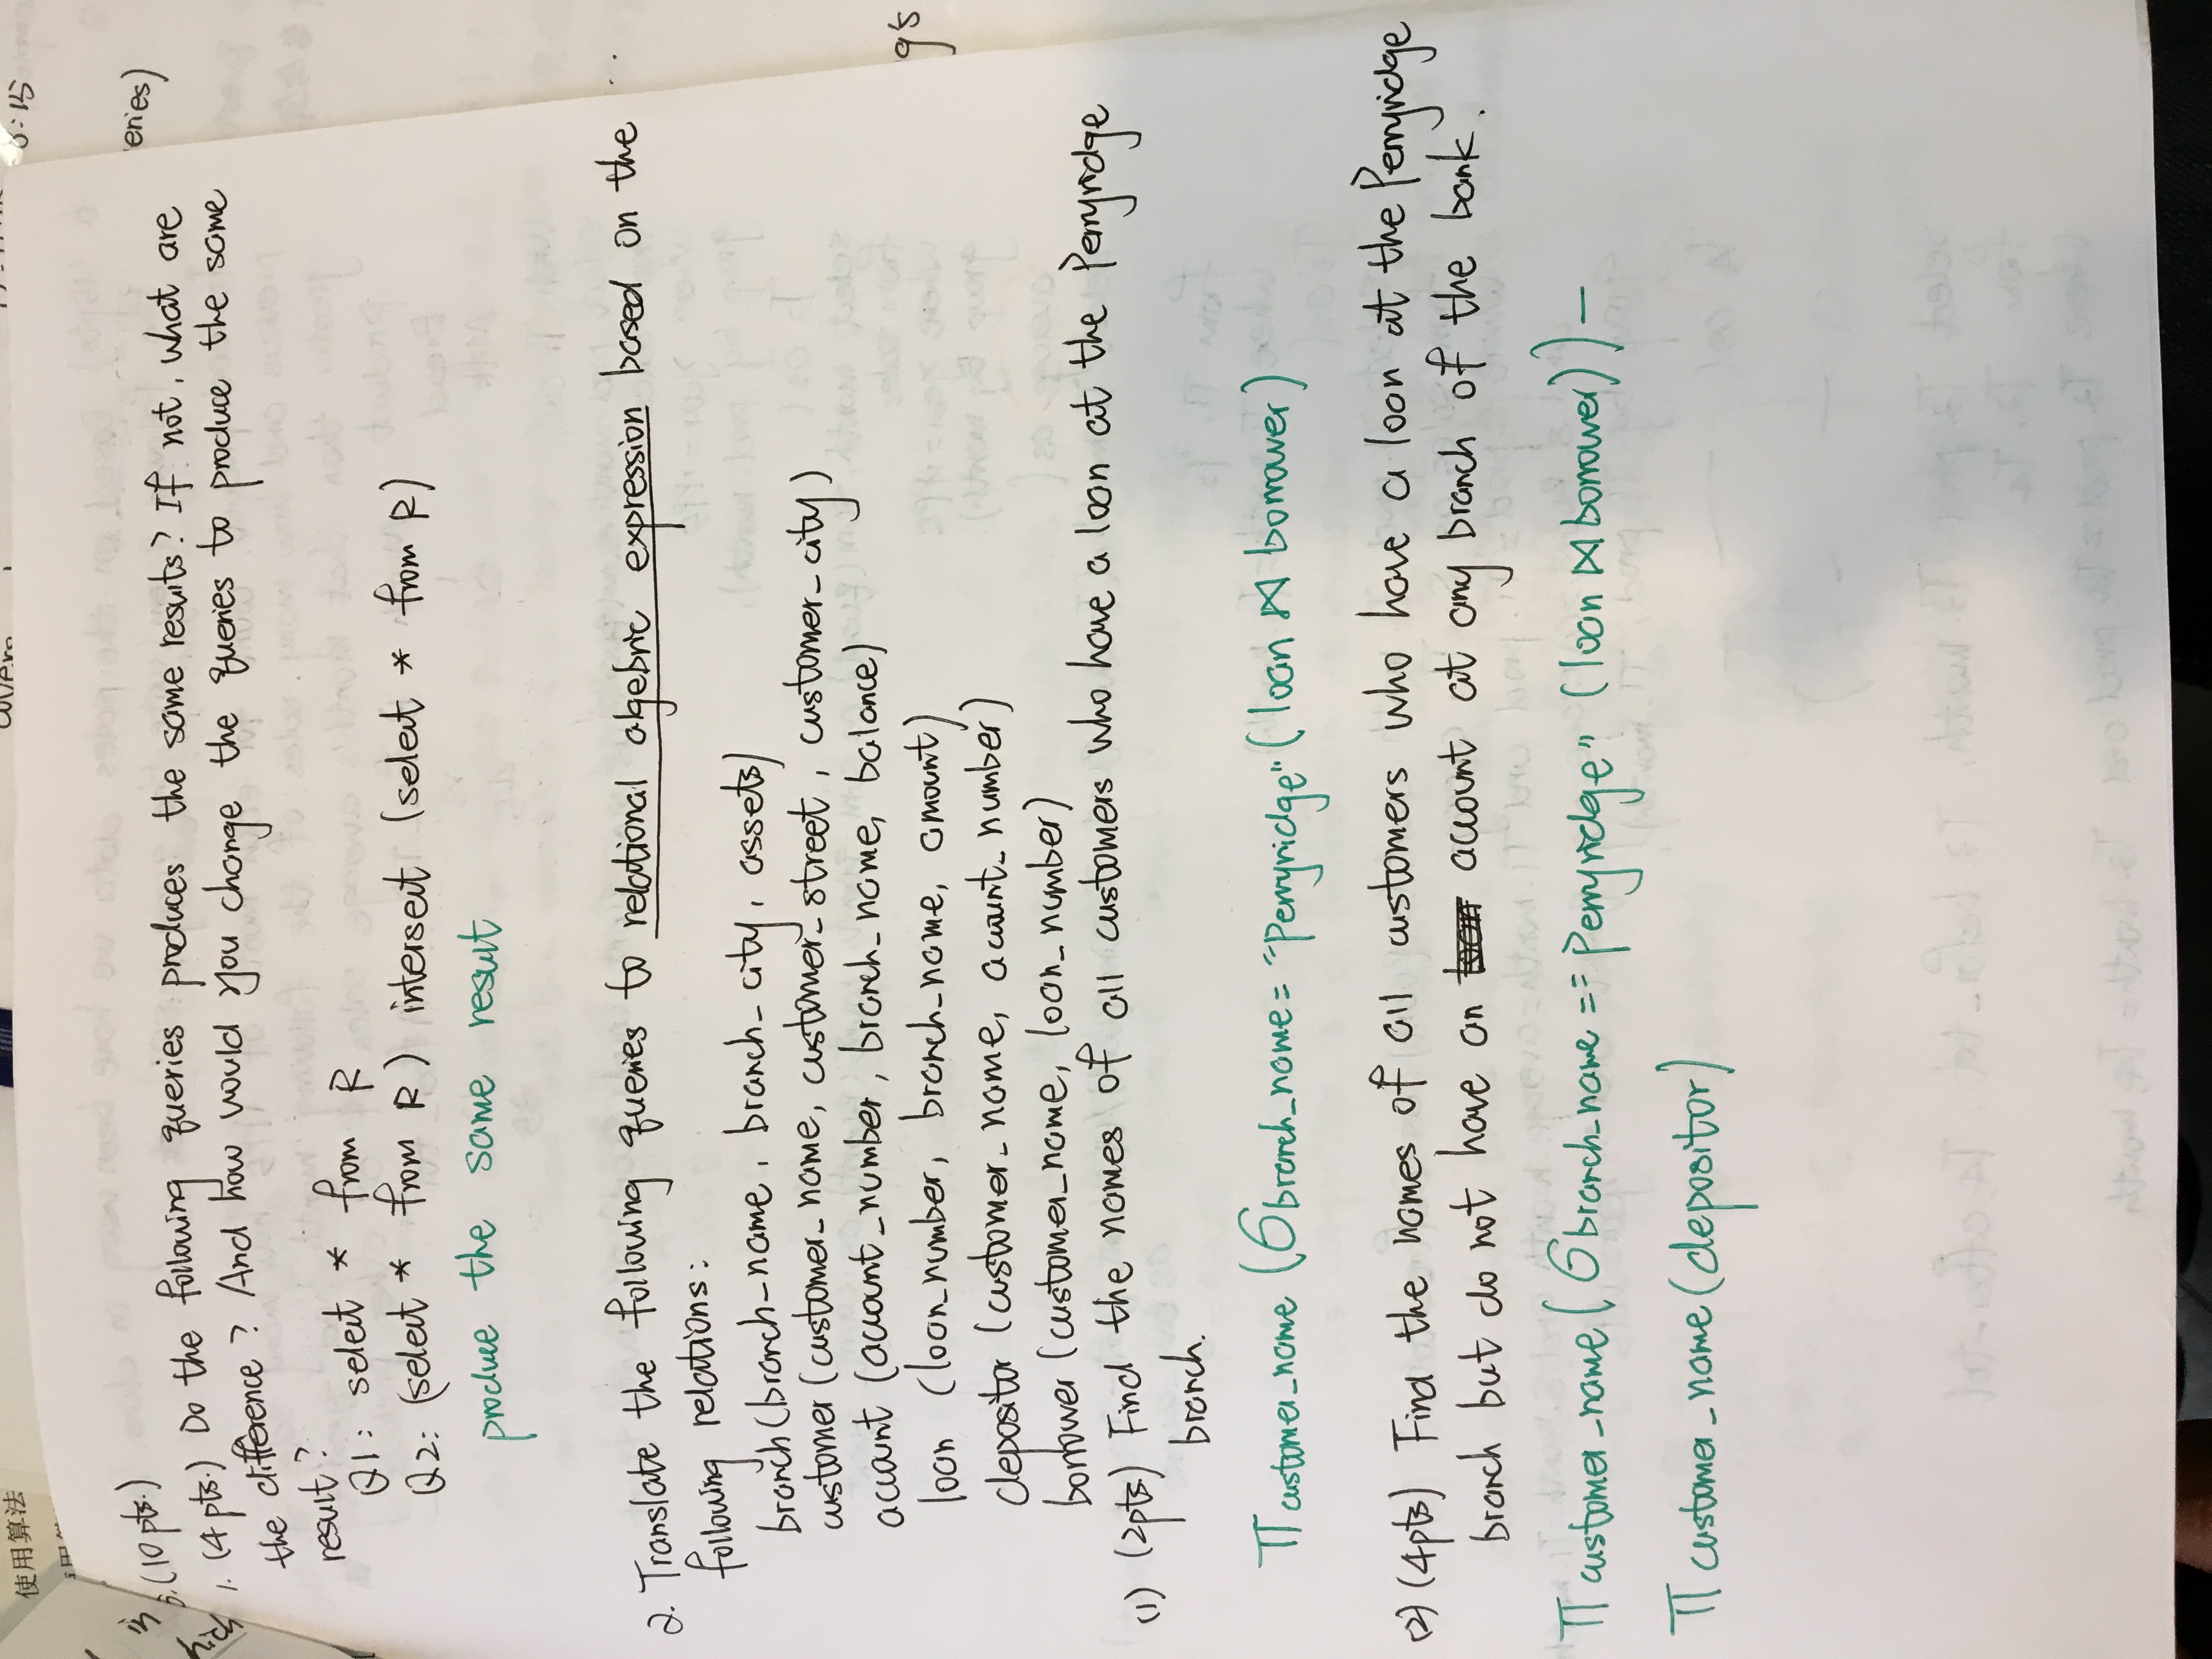 使用算法
6:15
eries)
5.(10 pts.)
1. (4 pts.) Do the following queries produces the same results? If not, what are
the difference? And how would you change the queries to produce the same
result?
Q1: select * from R
Q2: (select * from R) intersect (select * from R)
produce the same result
2. Translate the following queries to relational algebric expression based on the
following relations:
branch(branch_name, branch_city, assets)
customer (customer_name, customer_street, customer_city)
account (account_number, branch_name, balance)
loan (loan_number, branch_name, amount)
g's
depositor (customer_name, account_number)
borrower (customer_name, loan_number)
(1) (2pts.) Find the names of all customers who have a loan at the Perryridge
branch.
Π customer_name (σ branch_name = "Perryridge" (loan ⋈ borrower)
(2) (4pts) Find the names of all customers who have a loan at the Perryridge
branch but do not have an account at any branch of the bank.
Π customer_name (σ branch_name = "Perryridge" (loan ⋈ borrower)) −
Π customer_name (depositor)